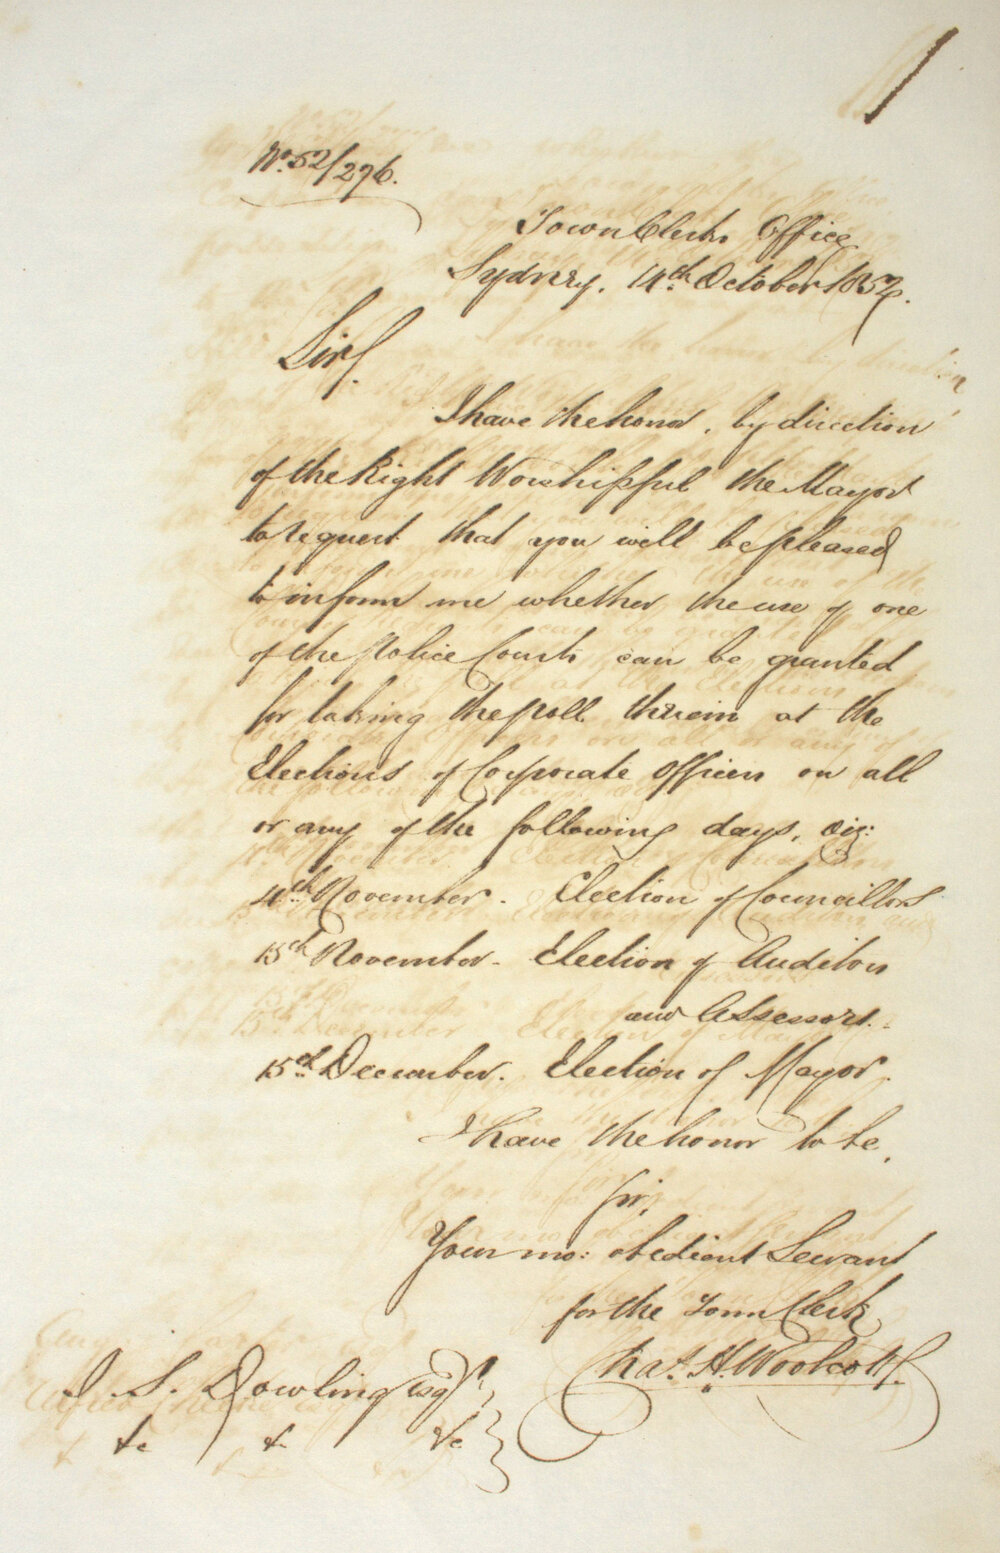 No. 52/276.
Town Clerks Office
Sydney. 14th October 1852.
Sir,
I have the honor, by direction
of the Right Worshipful the Mayor
to request that you will be pleased
to inform me whether the use of one
of the Police Courts can be granted
for taking the poll therein at the
Elections of Corporate Officers on all
or any of the following days, viz:
4th November. Election of Councillors
15th November. Election of Auditors
and Assessors.
15th December. Election of Mayor.
I have the honor to be,
Sir,
Your mo: obedient Servant
for the Town Clerk
Chas. H. Woolcott
J. S. Dowling Esqr.
&c & &c